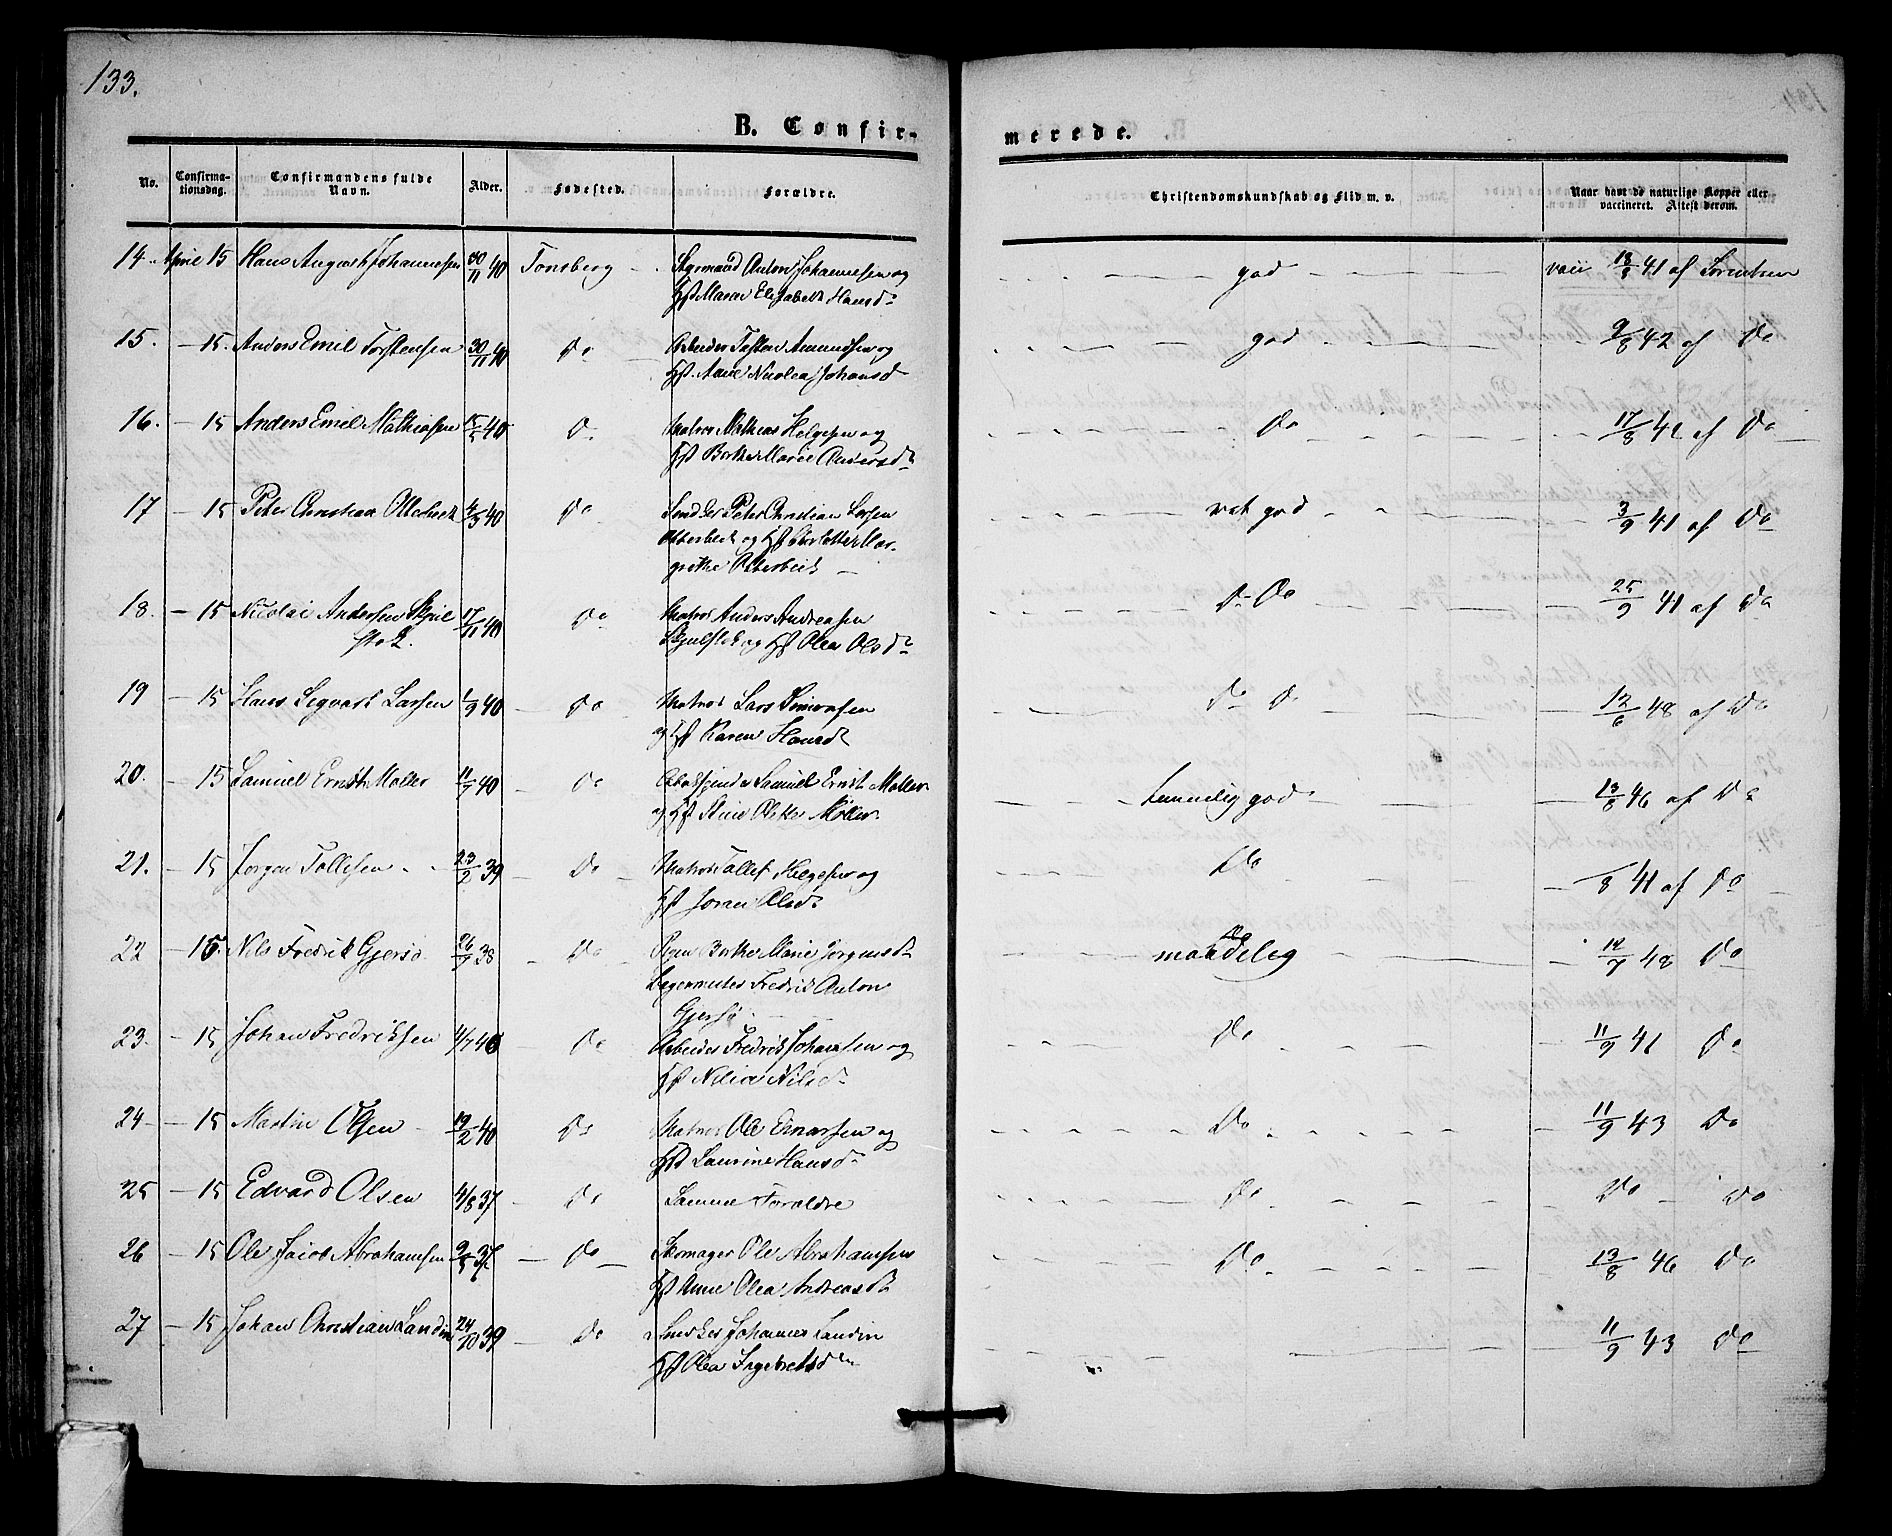 133.
B. Confir-
merede.
No.
Confirma-
tionsdag.
Confirmandens fulde
Navn.
Alder.
Fødested.
Forældre.
Christendomskundskab og Flid m. v.
Naar havt de naturlige Kopper eller
vaccineret. Attest derom.
14. April 15 Hans August Johannesen 30/11 40 Tønsberg Styrmand Anton Johannesen og god vacc 18/8 41 af Sørensen
Hst Maren Elisabeth Hansd
15. — 15. Anders Emil Torstensen 30/11 40 Do Arbeider Tosten Amundsen og god 9/8 42 af Do
Hst. Anne Nicolea Johansd
16. — 15 Anders Emil Mathiasen 15/5 40 D. Matros Mathias Helgesen og Do 17/8 42 af Do
Hst Berthe Marie Andersd
17 — 15 Peter Christian Otterbeck 4/3 40 Do Smed Peter Christian Larsen vat god 3/9 41 af Do
Otterbeck og Hst Charlotte Mar-
grethe Otterbeck —
18. — 15 Nicolai Andersen Skjel 17/11 40 Do Matros Anders Andreasen D- Do 25/9 41 af Do
Skjelsbek og Hst Olea Olsd
19 — 15 Hans Segvart Larsen 1/9 40 — Do Matros Lars Simonsen Do D 12/6 48 af Do
og Hst Karen Hansd
20. — 15 Samuel Ernst Møller 11/7 40 — Do Samuel Ernst Møller temmelig god 13/8 46 af Do
og Hst Stine Oletter Møller
21. — 15 Jørgen Tollefsen 23/2 39 — Do — Matros Tollef Helgesen og Do /8 41 af Do
Hst Joran Olsd
22 — 15. Nils Fredrik Gjersø 26/7 38 — Do Berthe Marie Jørgensd maadelig 12/7 48 Do
Fredrik Anton
Gjersø
23. — 15 Johan Fredriksen 4/7 40 — Do Arbeider Fredrik Johansen og Do 11/9 41 Do
Hst Nilia Nilsd
24 — 15 Martin Olsen 19/2 40 Do Matros Ole Enersen og Do 11/9 43 Do
Hst Laurine Hansd
25 — 15 Edvard Olsen 4/8 37 — Do Samme Foraldre Do Do — Do
26 — 15 Ole Jacob Abrahamsen 9/5 37 — Do — Skomager Ole Abrahamsen Do 13/8 46 Do
Hst Anne Olea Andreasd
27 — 15 Johan Christian Landin 24/10 39 — Do Smed Johannes Landin 11/9 43 Do
Hst Olea Ingebretsd